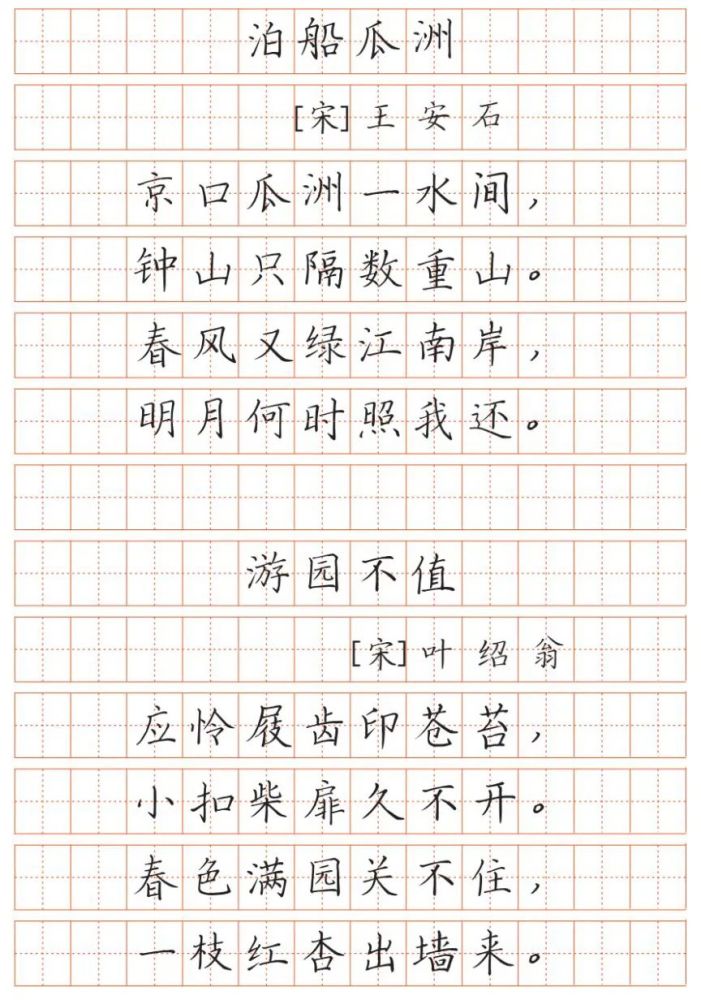 泊船瓜洲
[宋]王安石
京口瓜洲一水间，
钟山只隔数重山。
春风又绿江南岸，
明月何时照我还。
游园不值
[宋]叶绍翁
应怜屐齿印苍苔，
小扣柴扉久不开。
春色满园关不住，
一枝红杏出墙来。